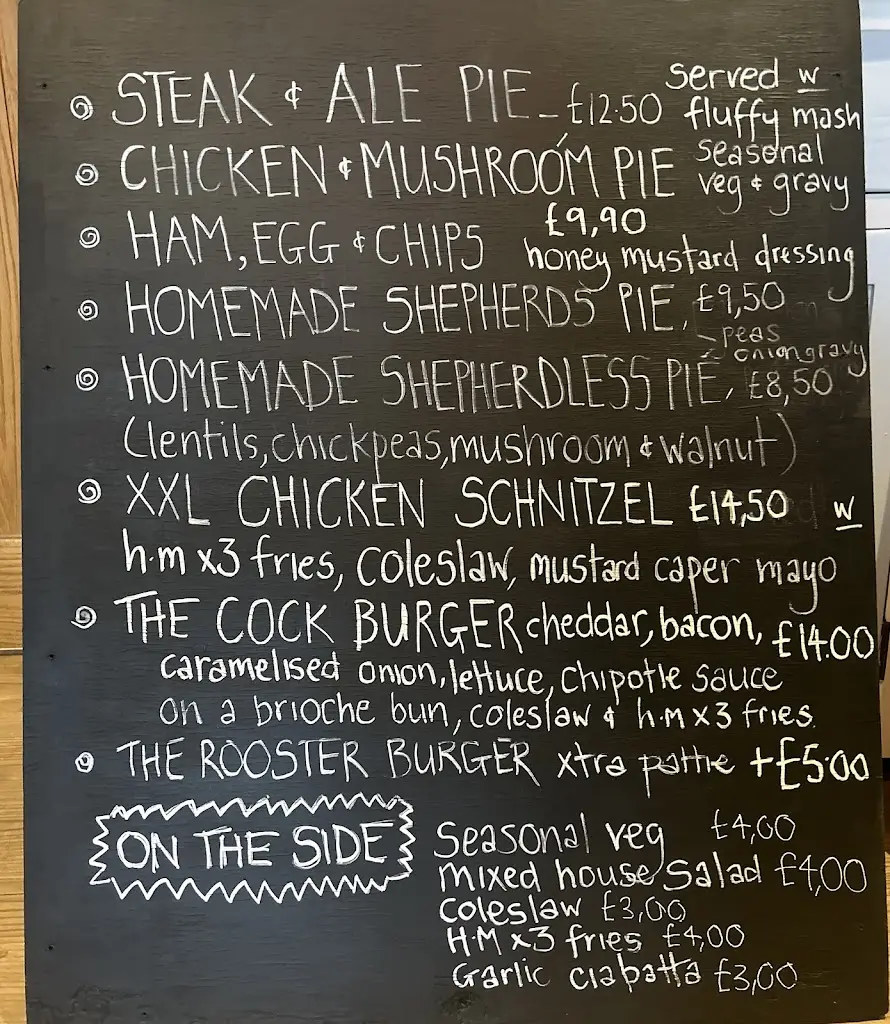 STEAK & ALE PIE - £12.50 served w
fluffy mash
CHICKEN & MUSHROOM PIE seasonal
veg & gravy
HAM, EGG & CHIPS £9,90
honey mustard dressing
HOMEMADE SHEPHERDS PIE, £9,50
peas
onion gravy
HOMEMADE SHEPHERDLESS PIE, £8,50
(lentils, chickpeas, mushroom & walnut)
XXL CHICKEN SCHNITZEL £14,50 w
h.m x3 fries, coleslaw, mustard caper mayo
THE COCK BURGER cheddar, bacon, £14.00
caramelised onion, lettuce, chipotle sauce
on a brioche bun, coleslaw & h.m x3 fries.
THE ROOSTER BURGER xtra pattie +£5.00
ON THE SIDE
Seasonal veg £4,00
mixed house salad £4,00
coleslaw £3,00
H.M x3 fries £4,00
Garlic ciabatta £3,00